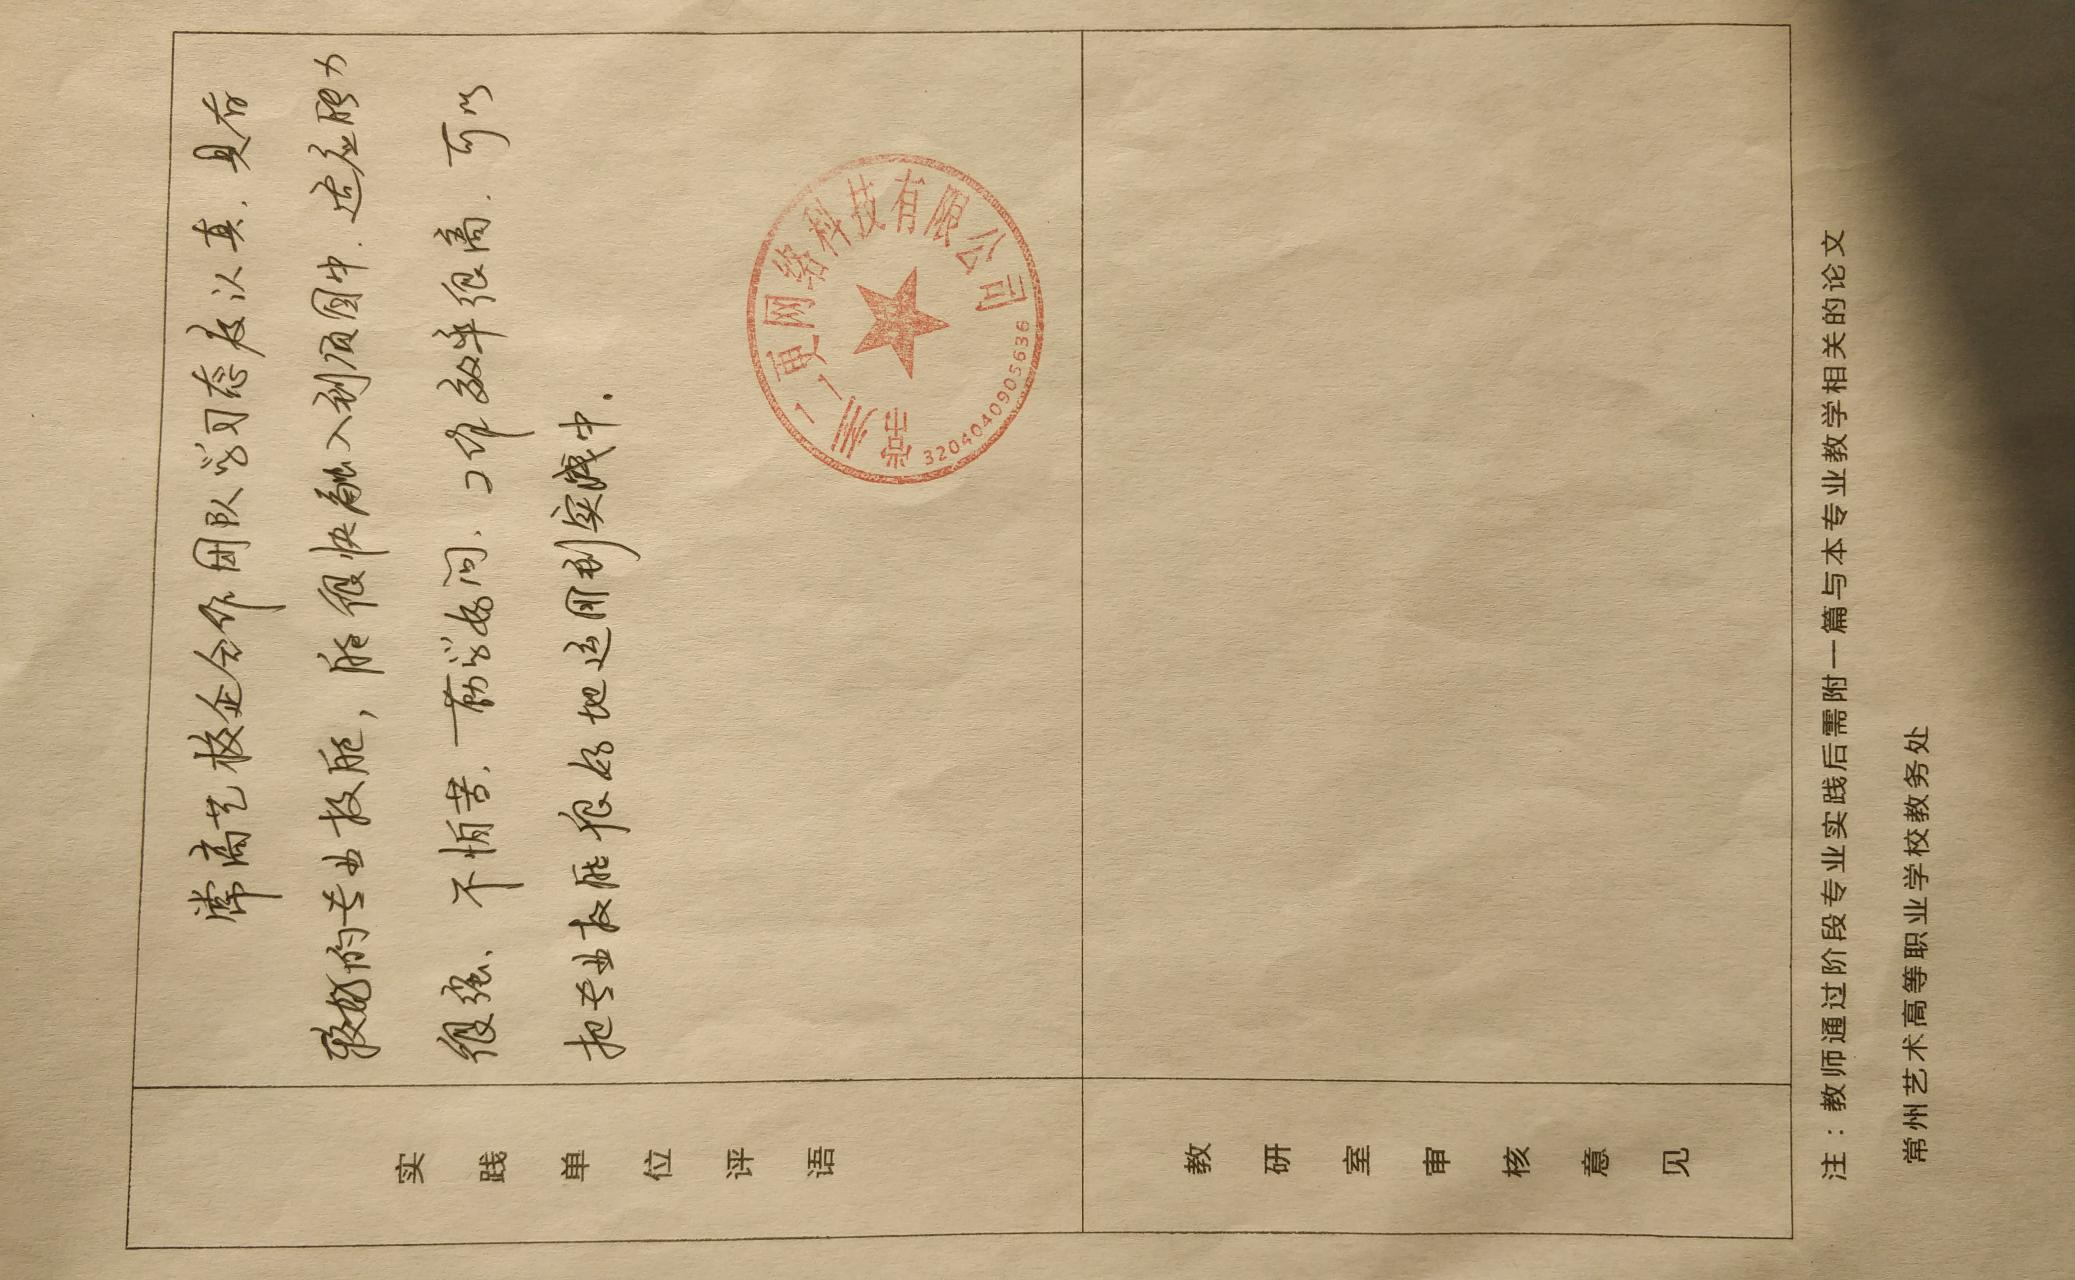 实践单位评语
常高艺校企合作团队学习态度认真.具有
较好的专业技能,能很快融入到项目中.适应能力
很强、不怕苦.勤学好问.工作效率很高.可以
把专业技能很好地运用到实践中.
常州一丁更网络科技有限公司
3204040905636
教研室审核意见
注:教师通过阶段专业实践后需附一篇与本专业教学相关的论文
常州艺术高等职业学校教务处